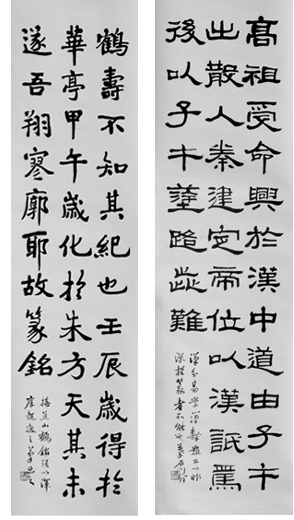 高祖受命興於漢中道由子午
出散入秦建定帝位以漢詆焉
後以子午塗路歰難
鶴壽不知其紀也壬辰歲得於
華亭甲午歲化於朱方天其未
遂吾翔寥廓耶故篆銘